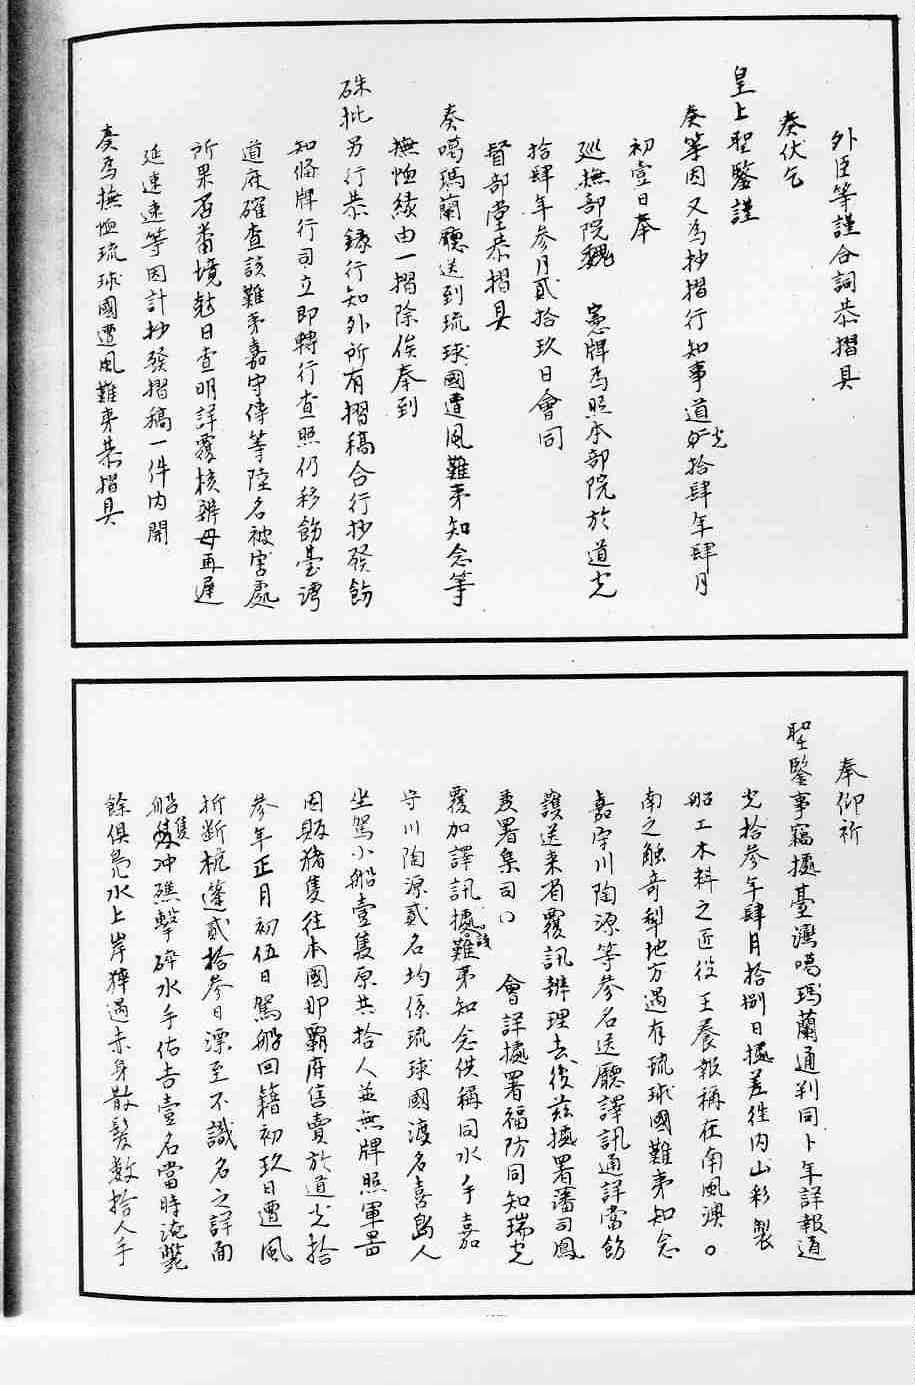 外臣等謹合詞恭摺具
奏伏乞
皇上聖鑒謹
奏等因又為抄摺行知事道光拾肆年肆月
初壹日奉
巡撫部院魏　憲牌為照本部院於道光
拾肆年參月貳拾玖日會同
督部堂恭摺具
奏噶瑪蘭廳送到琉球國遭風難夷知念等
撫恤緣由一摺除俟奉到
硃批另行恭錄行知外所有摺稿合行抄發飭
知條牌行司立即轉行查照仍移飭臺灣
道府確查該難夷嘉守傳等陸名被害處
所果否番境尅日查明詳覆核辨毋再遲
延速速等因計抄發摺稿一件內開
奏為撫恤琉球國遭風難夷恭摺具
奉仰祈
聖鑒事竊據臺灣噶瑪蘭通判同卜年詳報道
光拾參年肆月拾捌日據差徃內山彩製
船工木料之匠役王養報稱在南風澳。
南之觸奇犁地方遇有琉球國難夷知念
嘉守川陶源等參名送廳譯訊通詳當飭
護送来省覆訊辨理去後茲據署潘司鳳
署臬司口　會詳據署福防同知瑞光
覆加譯訊據該難夷知念供稱同水手嘉
守川陶源貳名均係琉球國渡名喜島人
坐駕小船壹隻原共拾人並無牌照軍器
因販猪隻往本國那覇府售賣於道光拾
參年正月初伍日駕船回籍初玖日遭風
折斷桅蓬貳拾參日漂至不識名之詳面
船隻冲礁擊碎水手佑吉壹名當時淹斃
餘俱鳧水上岸猝遇赤身散髮數拾人手